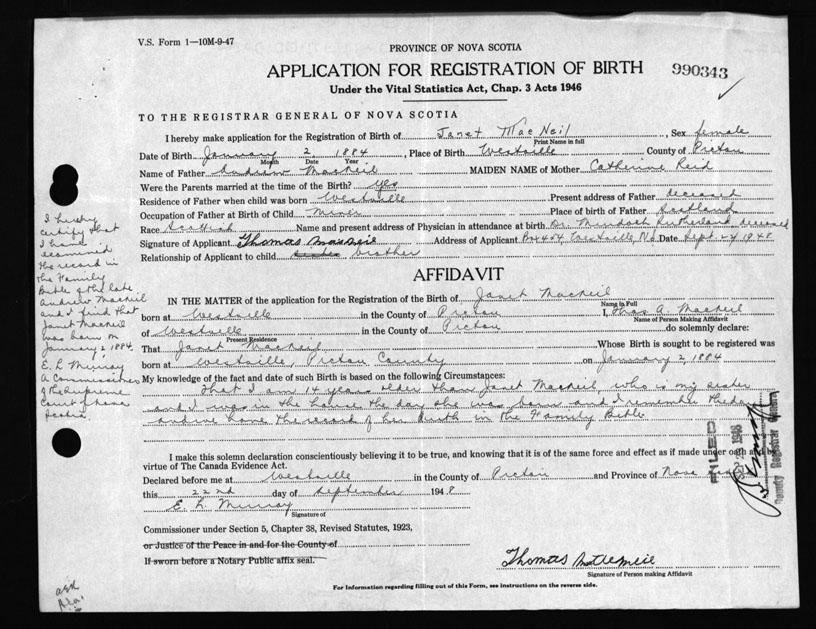 V.S. Form 1—10M-9-47
PROVINCE OF NOVA SCOTIA
APPLICATION FOR REGISTRATION OF BIRTH 990343
Under the Vital Statistics Act, Chap. 3 Acts 1946
TO THE REGISTRAR GENERAL OF NOVA SCOTIA
I hereby make application for the Registration of Birth of Janet MacNeil, Sex female
Print Name in full
Date of Birth January 2, 1884, Place of Birth Westville County of Pictou
Month Date Year
Name of Father Andrew MacNeil MAIDEN NAME of Mother Catherine Reid
Were the Parents married at the time of the Birth? Yes
Residence of Father when child was born Westville Present address of Father deceased
Occupation of Father at Birth of Child Miner Place of birth of Father Scotland
Race Scottish Name and present address of Physician in attendance at birth Dr. Murdoch Sutherland deceased
Signature of Applicant Thomas MacNeil Address of Applicant Box 454 Westville, N.S. Date Sept. 24 1948
Relationship of Applicant to child brother
AFFIDAVIT
IN THE MATTER of the application for the Registration of the Birth of Janet MacNeil
Name in Full
born at Westville in the County of Pictou I, Thos A. MacNeil
Name of Person Making Affidavit
of Westville in the County of Pictou do solemnly declare:
Present Residence
That Janet MacNeil Whose Birth is sought to be registered was
born at Westville, Pictou County on January 2, 1884
My knowledge of the fact and date of such Birth is based on the following Circumstances:
That I am 14 years older than Janet MacNeil, who is my sister
and I was in the house the day she was born and I remember the day
and we have the record of her birth in the Family Bible
I make this solemn declaration conscientiously believing it to be true, and knowing that it is of the same force and effect as if made under oath and by
virtue of The Canada Evidence Act.
Declared before me at Westville in the County of Pictou and Province of Nova Scotia
this 22nd day of September 1948
E. L. Murray
Signature of
Commissioner under Section 5, Chapter 38, Revised Statutes, 1923,
or Justice of the Peace in and for the County of
If sworn before a Notary Public affix seal.
Thomas MacNeil
Signature of Person making Affidavit
For Information regarding filling out of this Form, see instructions on the reverse side.
I hereby
certify that
I have
examined
the record in
the Family
Bible of the late
Andrew MacNeil
and I find that
Janet MacNeil
was born on
January 2, 1884.
E. L. Murray
A Commissioner
of the Supreme
Court of Nova
Scotia
FILED
1948
Deputy Registrar General